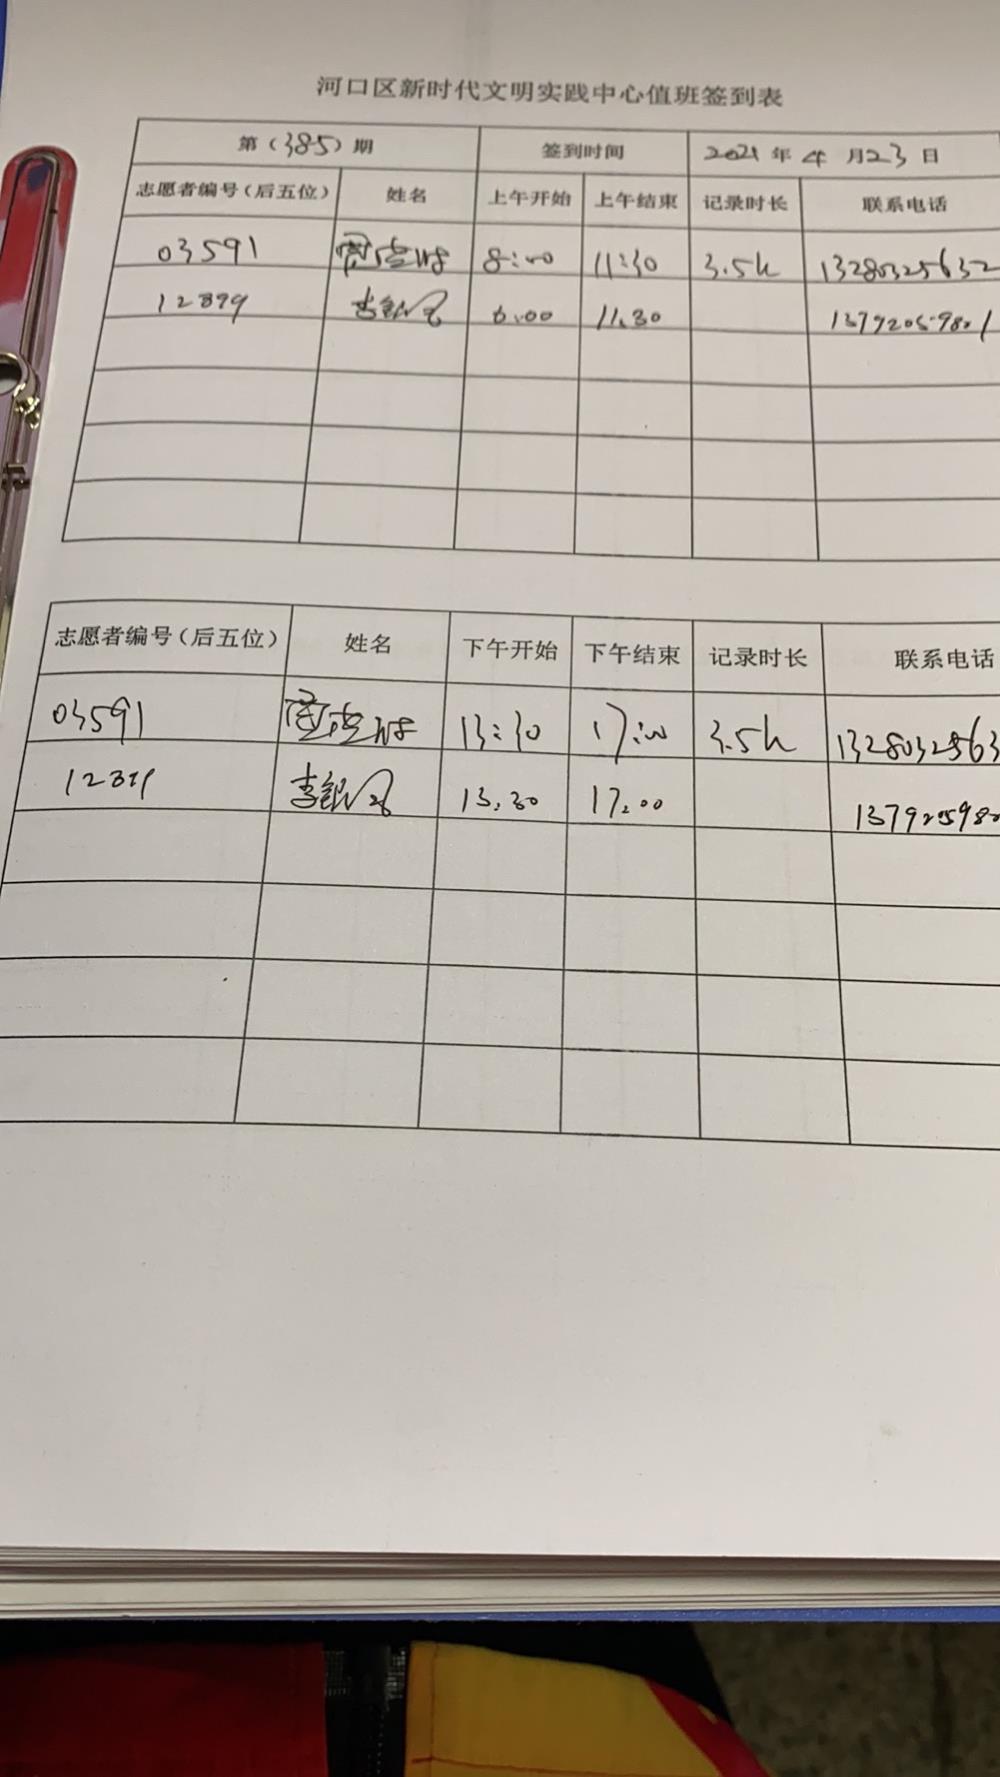 河口区新时代文明实践中心值班签到表
第（385）期 签到时间 2021 年 4 月 23 日
志愿者编号（后五位） 姓名 上午开始 上午结束 记录时长 联系电话
03591 8:00 11:30 3.5h 13280325632
12879 李银凤 11.30 13792059801
志愿者编号（后五位） 姓名 下午开始 下午结束 记录时长 联系电话
03591 13:30 17:00 3.5h 1328032563
李银凤 13.30 17.00 1379205980